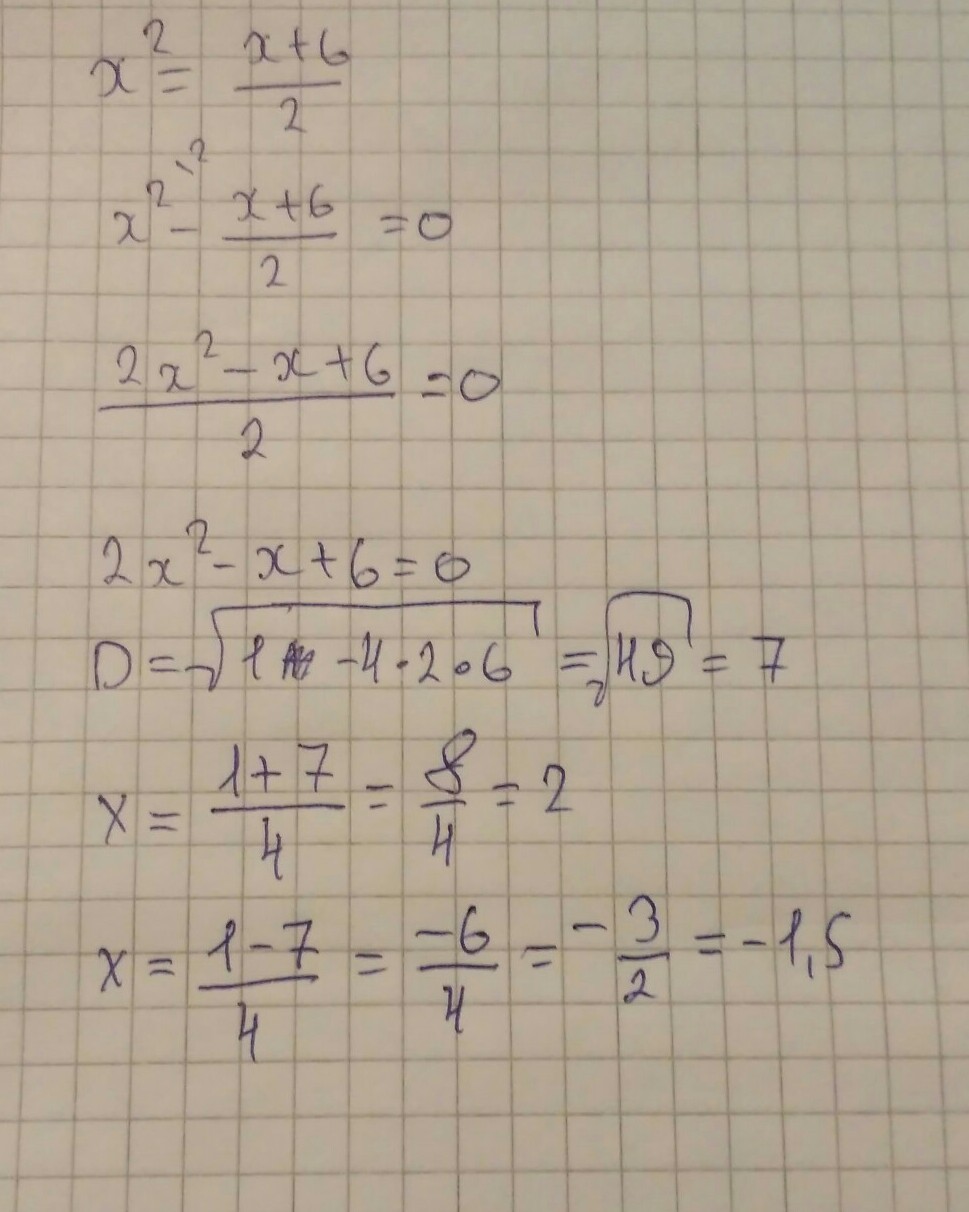 x² = (x+6)/2
x² - (x+6)/2 = 0
(2x² - x + 6)/2 = 0
2x² - x + 6 = 0
D = √(1 - 4·2·6) = √49 = 7
x = (1+7)/4 = 8/4 = 2
x = (1-7)/4 = -6/4 = -3/2 = -1,5